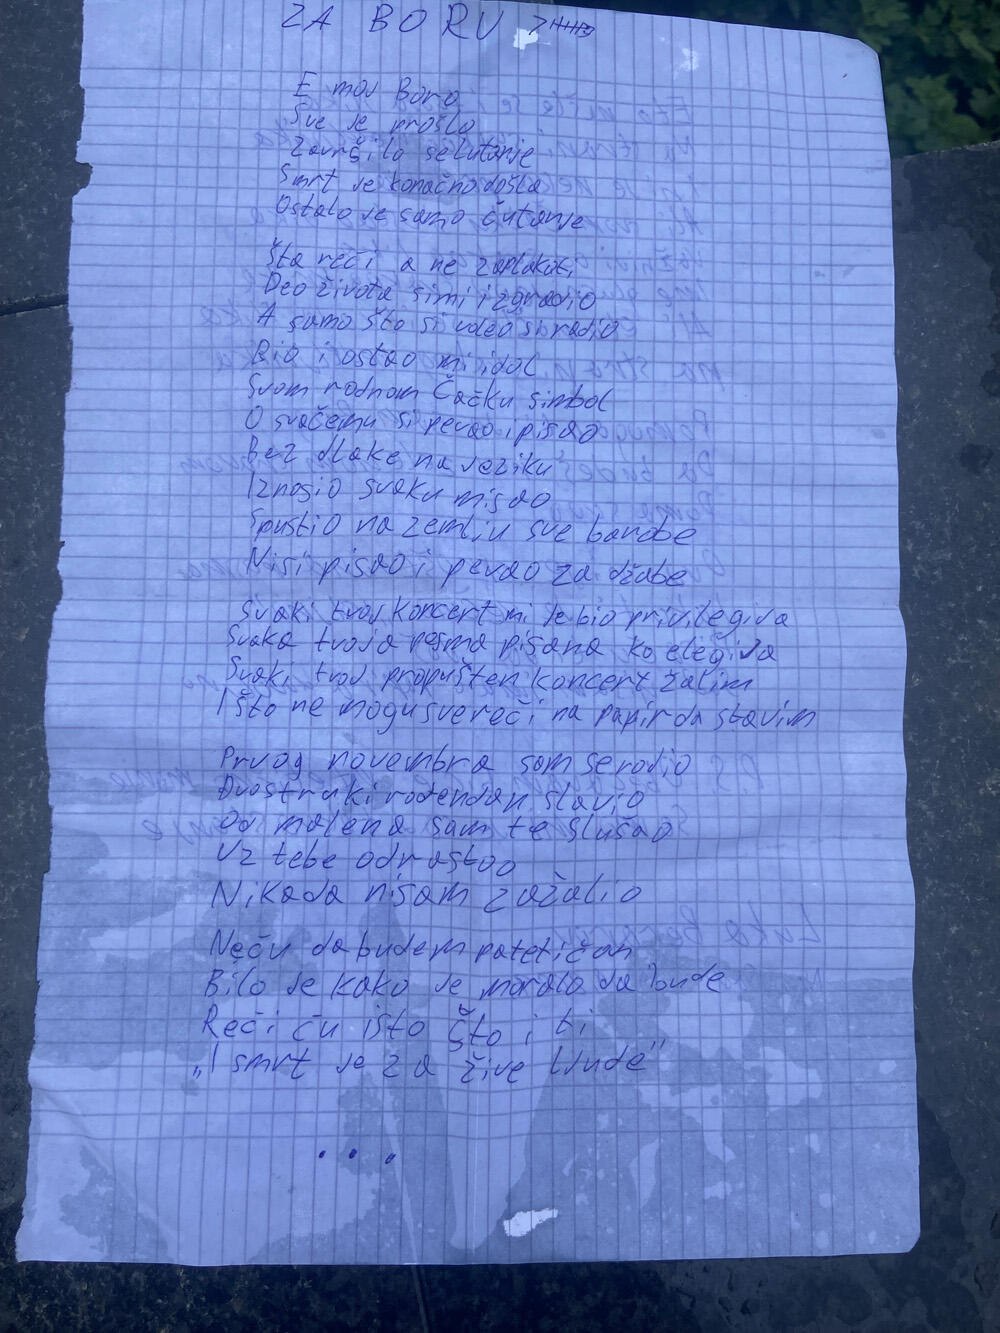 ZA BORU
E moj Boro
Sve je prošlo
Završilo se lutanje
Smrt je konačno došla
Ostalo je samo ćutanje
Šta reći a ne zaplakati
Deo života si mi izgradio
A samo što si video si radio
Bio i ostao mi idol
Svom rodnom Čačku simbol
O svačemu si pevao i pisao
Bez dlake na jeziku
Iznosio svaku misao
Spustio na zemlju sve barabe
Nisi pisao i pevao za džabe
Svaki tvoj koncert mi je bio privilegija
Svaka tvoja pesma pisana ko elegija
Svaki tvoj propušten koncert žalim
I što ne mogu sve reči na papir da stavim
Prvog novembra sam se rodio
Dvostruki rođendan slavio
Od malena sam te slušao
Uz tebe odrastao
Nikada nisam zažalio
Neću da budem patetičan
Bilo je kako je moralo da bude
Reći ću isto što i ti
„I smrt je za žive ljude"
...